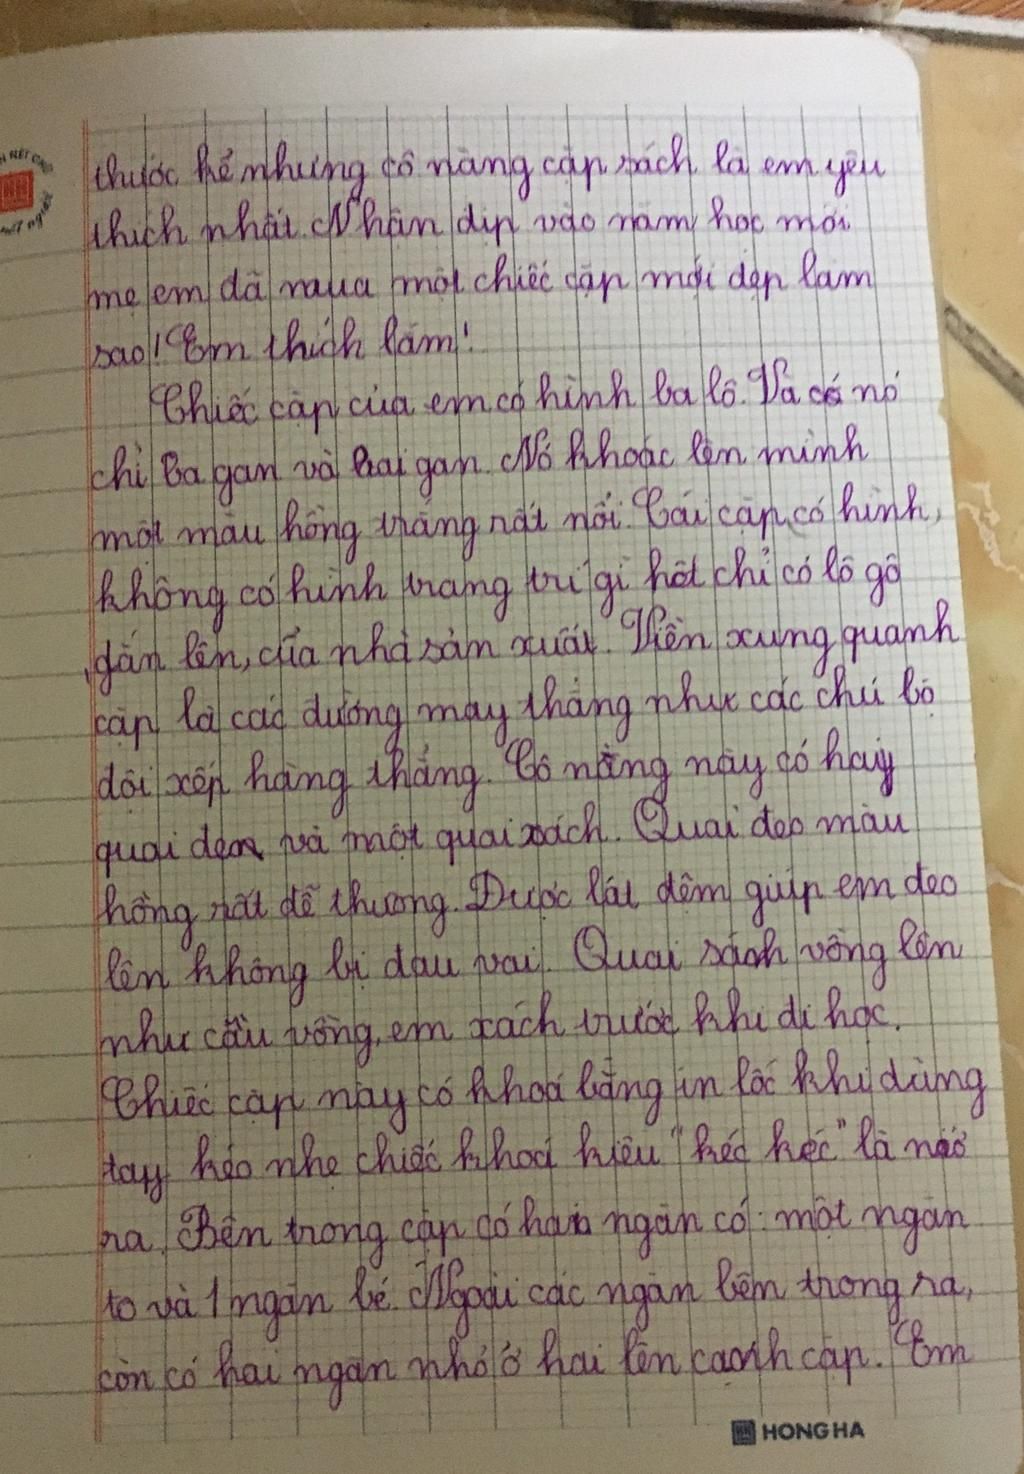 thước kẻ nhưng cô nàng cặp sách là em yêu
thích nhất. Nhân dịp vào năm học mới
mẹ em đã mua một chiếc cặp mới đẹp làm
sao! Em thích lắm!
Chiếc cặp của em có hình ba lô. Và nó
chỉ ba gan và hai gan. Nó khoác lên mình
một màu hồng trắng rất nổi. Cái cặp có hình,
không có hình trang trí gì hết chỉ có lô gô
gắn lên, của nhà sản xuất. Viền xung quanh
cặp là các đường may thẳng như các chú bộ
đội xếp hàng thẳng. Cô nàng này có hay
quai đeo và một quai xách. Quai đeo màu
hồng rất dễ thương. Được lát đệm giúp em đeo
lên không bị đau vai. Quai sách vồng lên
như cầu vồng, em xách trước khi đi học.
Chiếc cặp này có khoá bằng in lốc khi dùng
tay kéo nhẹ chiếc khoá kiêu "kéc kéc" là nó
ra. Bên trong cặp có hai ngăn có: một ngăn
to và 1 ngăn bé. Ngoài các ngăn bêm trong ra,
còn có hai ngăn nhỏ ở hai bên cạnh cặp. Em
HONG HA